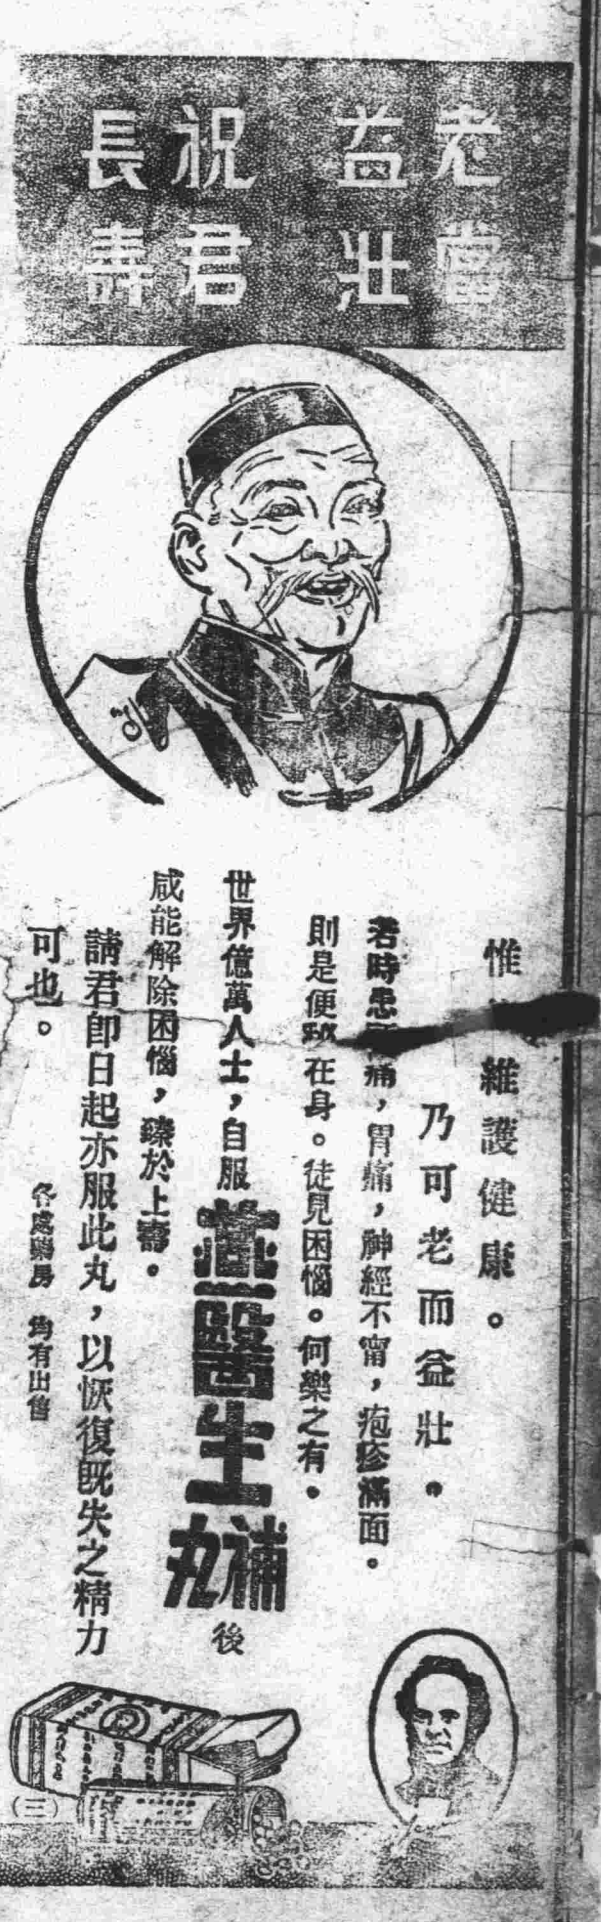 老當
益壯
祝君
長壽
惟維護健康。
乃可老而益壯。
若時患痛，胃痛，神經不甯，疱疹滿面。
則是便秘在身。徒見困惱。何樂之有。
世界億萬人士，自服
醫生
補丸
後
咸能解除困惱，臻於上壽。
請君卽日起亦服此丸，以恢復旣失之精力
可也。
各處藥房 均有出售
(三)